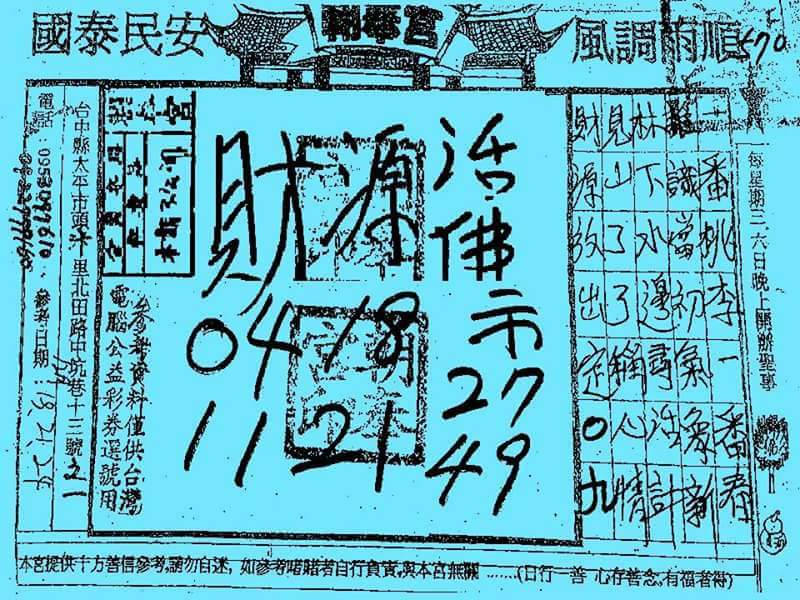 國泰民安
風調雨順
570
一番桃李一番春
難識當初氣象新
林下水邊尋活計
見山了了稱心情
財源放出定0九
每星期三六日晚上開辦聖事
活佛示
財源
04 18 27
11 21 49
參考資料僅供台灣
電腦公益彩券選號用
台中縣太平市頭汴里北田路中坑巷十三號之一
電話:
參考日期:
本宮提供十方善信參考,請勿自迷,如參考賭賭者自行負責,與本宮無關 ......(日行一善 心存善念,有福者得)